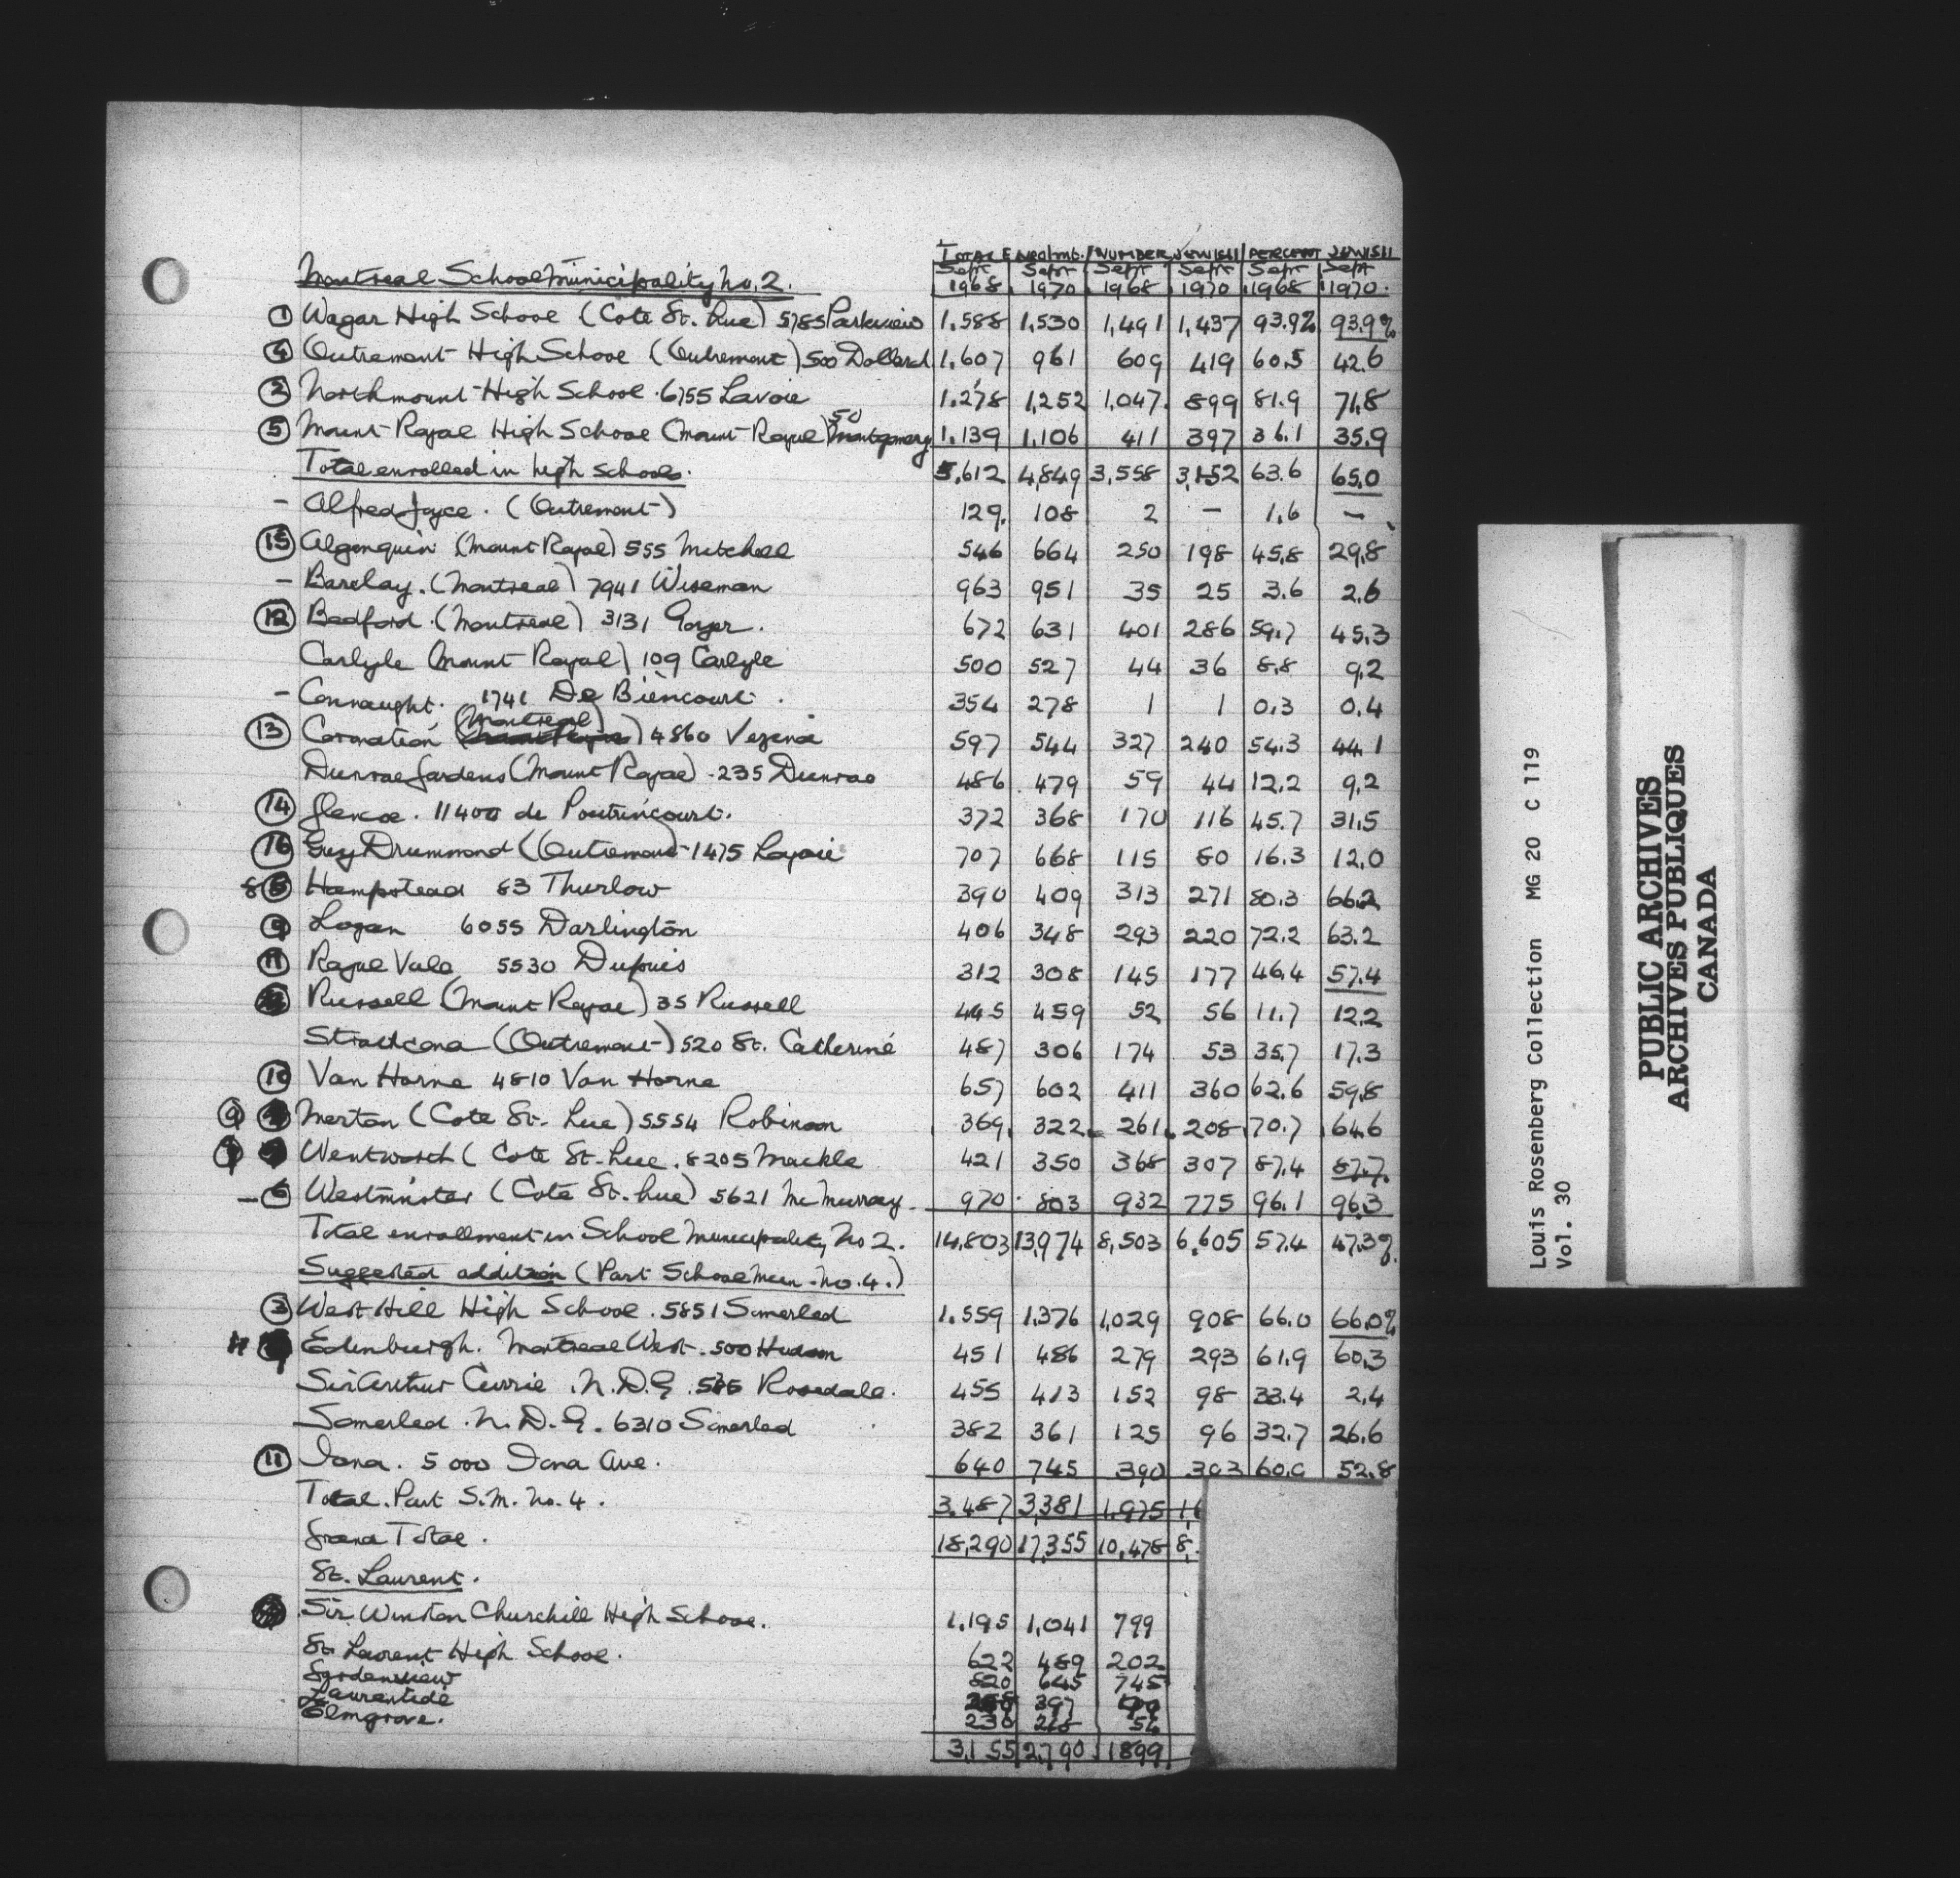 TOTAL Enrolmt. NUMBER JEWISH PERCENT JEWISH
Sept Sept Sept Sept Sept Sept
Montreal School Municipality No. 2. 1968 1970 1968 1970 1968 1970
① Wagar High School (Cote St. Luc) 5785 Parkview 1,588 1,530 1,491 1,437 93.9% 93.9%
④ Outremont High School (Outremont) 500 Dollard 1,607 961 609 419 60.5 42.6
② Northmount High School. 6755 Lavoie 1,278 1,252 1,047 899 81.9 71.8
⑤ Mount Royal High School (Mount Royal) 50 Montgomery 1,139 1,106 411 397 36.1 35.9
Total enrolled in high schools. 5,612 4,849 3,558 3,152 63.6 65.0
- Alfred Joyce. (Outremont) 129 108 2 - 1.6 -
⑮ Algonquin (Mount Royal) 555 Mitchell 546 664 250 198 45.8 29.8
- Barclay. (Montreal) 7941 Wiseman 963 951 35 25 3.6 2.6
⑫ Bedford. (Montreal) 3131 Goyer. 672 631 401 286 59.7 45.3
Carlyle (Mount Royal) 109 Carlyle 500 527 44 36 8.8 9.2
- Connaught. 1741 De Biencourt. 354 278 1 1 0.3 0.4
⑬ Coronation (Montreal) 4860 Vezina 597 544 327 240 54.3 44.1
Dunrae Gardens (Mount Royal) - 235 Dunrae 486 479 59 44 12.2 9.2
⑭ Glencoe. 11400 de Poutrincourt. 372 368 170 116 45.7 31.5
⑯ Guy Drummond (Outremont - 1475 Lajoie 707 668 115 80 16.3 12.0
8 Hampstead 83 Thurlow 390 409 313 271 80.3 66.2
⑨ Logan 6055 Darlington 406 348 293 220 72.2 63.2
⑪ Royal Vale 5530 Dupuis 312 308 145 177 46.4 57.4
Russell (Mount Royal) 35 Russell 445 459 52 56 11.7 12.2
Strathcona (Outremont) 520 St. Catherine 487 306 174 53 35.7 17.3
⑩ Van Horne 4810 Van Horne 657 602 411 360 62.6 59.8
⑨ Merton (Cote St. Luc) 5554 Robinson 369 322 261 208 70.7 64.6
Wentworth (Cote St. Luc. 8205 Mackle 421 350 368 307 87.4 87.7
- ⑥ Westminster (Cote St. Luc) 5621 McMurray 970 803 932 775 96.1 96.3
Total enrollment in School Municipality No 2. 14,803 13,974 8,503 6,605 57.4 47.3%
Suggested addition (Part School Mun. No. 4.)
③ West Hill High School. 5851 Somerled 1,559 1,376 1,029 908 66.0 66.0%
Edinburgh. Montreal West. 500 Hudson 451 486 279 293 61.9 60.3
Sir Arthur Currie. N.D.G. Rosedale. 455 413 152 98 33.4 2.4
Somerled. N.D.G. 6310 Somerled 382 361 125 96 32.7 26.6
⑪ Iona. 5000 Iona Ave. 640 745 390 303 60.9 52.8
Total. Part S.M. No. 4. 3,487 3,381 1,975
Grand Total. 18,290 17,355 10,478 8,
St. Laurent.
Sir Winston Churchill High School. 1,195 1,041 799
St. Laurent High School. 622 489 202
Sydenview 820 645 745
Laurentide 397
Elmgrove. 230 218 54
3,155 2,790 1899
Louis Rosenberg Collection MG 20 C 119
Vol. 30
PUBLIC ARCHIVES
ARCHIVES PUBLIQUES
CANADA